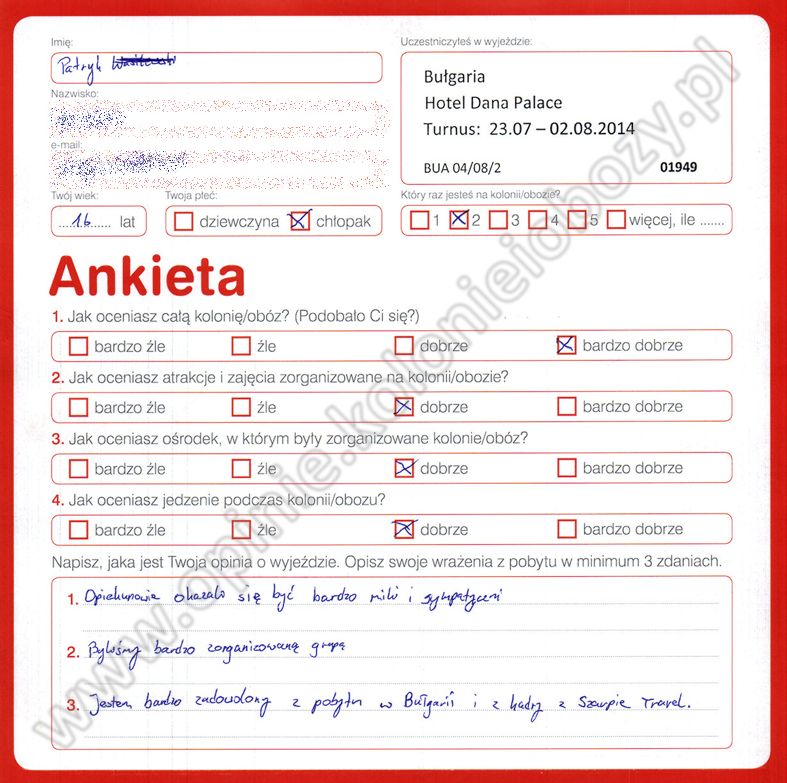 Imię:
Patryk
Uczestniczyłeś w wyjeździe:
Bułgaria
Hotel Dana Palace
Turnus: 23.07 – 02.08.2014
BUA 04/08/2 01949
Nazwisko:
e-mail:
Twój wiek:
16 lat
Twoja płeć:
dziewczyna chłopak
Który raz jesteś na kolonii/obozie?
1 2 3 4 5 więcej, ile .......
Ankieta
1. Jak oceniasz całą kolonię/obóz? (Podobało Ci się?)
bardzo źle źle dobrze bardzo dobrze
2. Jak oceniasz atrakcje i zajęcia zorganizowane na kolonii/obozie?
bardzo źle źle dobrze bardzo dobrze
3. Jak oceniasz ośrodek, w którym były zorganizowane kolonie/obóz?
bardzo źle źle dobrze bardzo dobrze
4. Jak oceniasz jedzenie podczas kolonii/obozu?
bardzo źle źle dobrze bardzo dobrze
Napisz, jaka jest Twoja opinia o wyjeździe. Opisz swoje wrażenia z pobytu w minimum 3 zdaniach.
1. Opiekunowie okazało się być bardzo mili i sympatyczni
2. Byliśmy bardzo zorganizowaną grupą
3. Jestem bardzo zadowolony z pobytu w Bułgarii i z kadry z Szarpie Travel.
www.opinie.kolonieiobozy.pl